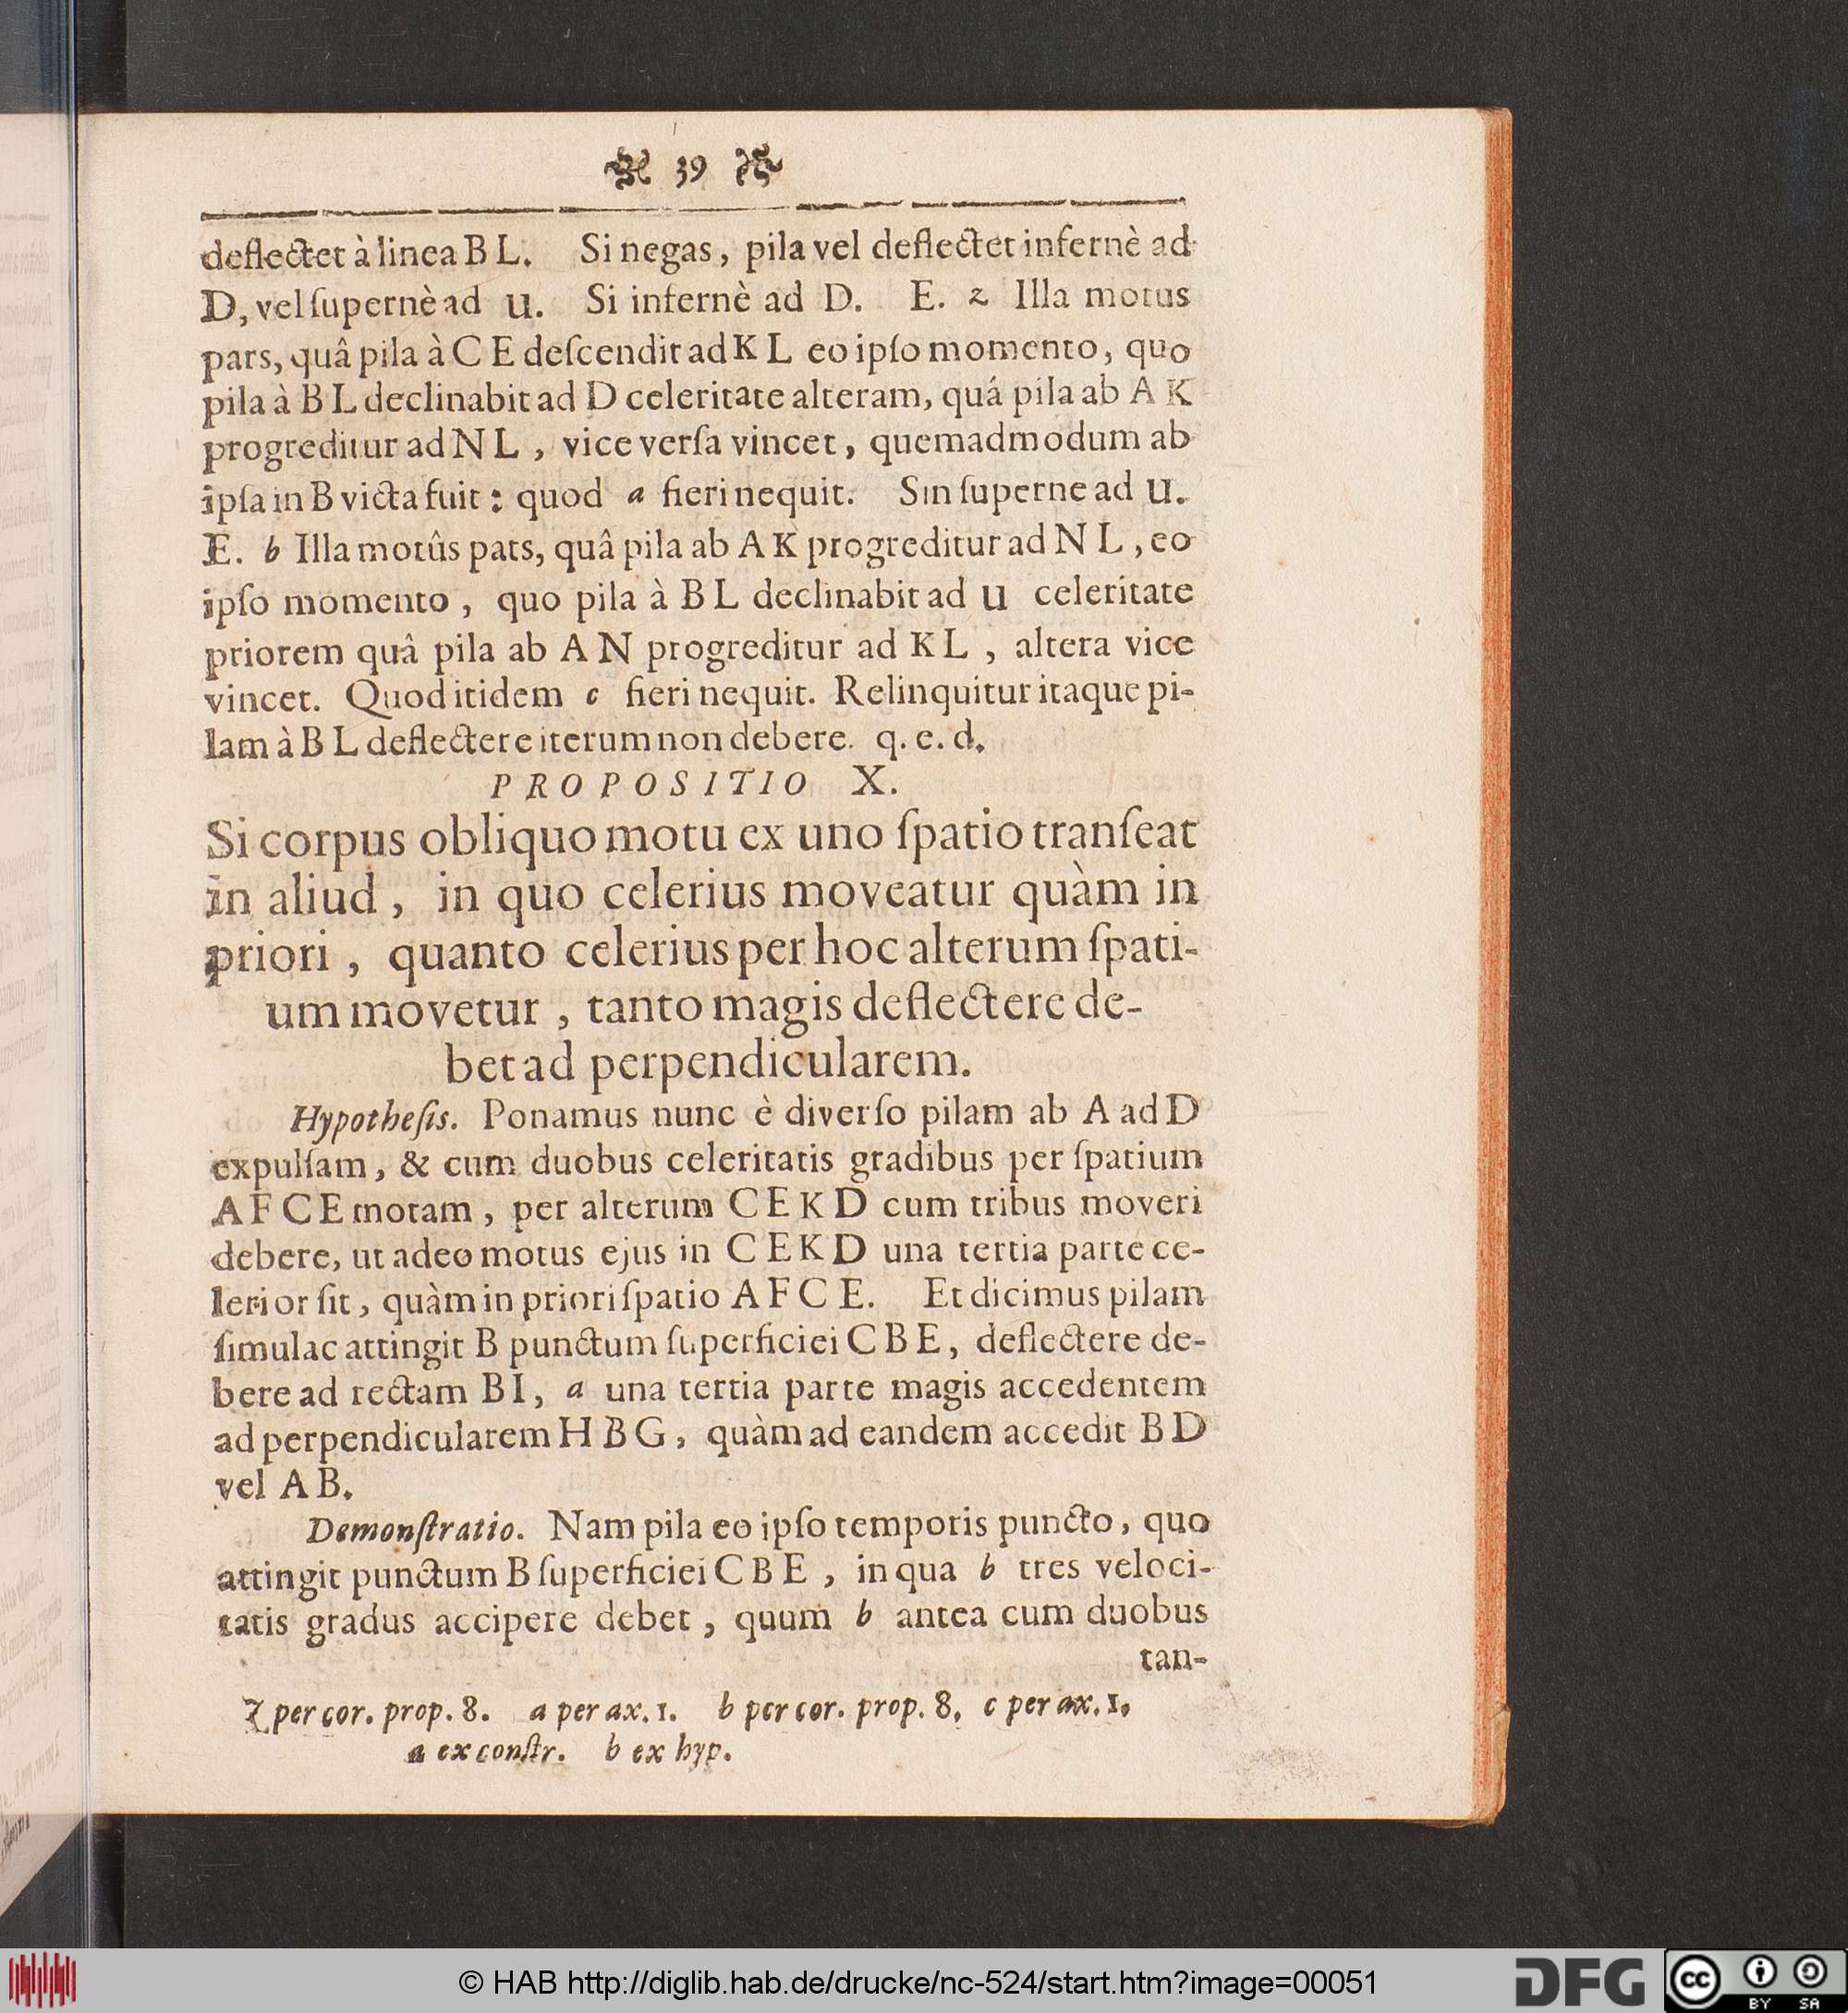 39
deflectet à linea B L. Si negas, pila vel deflectet infernè ad
D, vel ſupernè ad u. Si infernè ad D. E. z Illa motus
pars, quâ pila à C E deſcendit ad K L eo ipſo momento, quo
pila à B L declinabit ad D celeritate alteram, quá pila ab A K
progreditur ad N L, vice verſa vincet, quemadmodum ab
ipſa in B victa fuit: quod a fieri nequit. Sin ſuperne ad u.
E. b Illa motûs pats, quâ pila ab A K progreditur ad N L, eo
ipſo momento, quo pila à B L declinabit ad u celeritate
priorem quâ pila ab A N progreditur ad K L, altera vice
vincet. Quod itidem c fieri nequit. Relinquitur itaque pi-
lam à B L deflectere iterum non debere. q. e. d.
PROPOSITIO X.
Si corpus obliquo motu ex uno ſpatio tranſeat
in aliud, in quo celerius moveatur quàm in
priori, quanto celerius per hoc alterum ſpati-
um movetur, tanto magis deflectere de-
bet ad perpendicularem.
Hypotheſis. Ponamus nunc è diverſo pilam ab A ad D
expulſam, & cum duobus celeritatis gradibus per ſpatium
A F C E motam, per alterum C E K D cum tribus moveri
debere, ut adeo motus ejus in C E K D una tertia parte ce-
lerior ſit, quàm in priori ſpatio A F C E. Et dicimus pilam
ſimulac attingit B punctum ſuperficiei C B E, deflectere de-
bere ad rectam B I, a una tertia parte magis accedentem
ad perpendicularem H B G, quàm ad eandem accedit B D
vel A B.
Demonſtratio. Nam pila eo ipſo temporis puncto, quo
attingit punctum B ſuperficiei C B E, in qua b tres veloci-
tatis gradus accipere debet, quum b antea cum duobus
tan-
z per cor. prop. 8. a per ax. 1. b per cor. prop. 8. c per ax. 1.
a ex conſtr. b ex hyp.
© HAB http://diglib.hab.de/drucke/nc-524/start.htm?image=00051
DFG
cc
BY SA